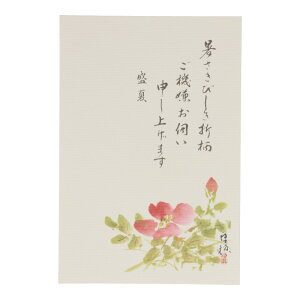 暑さきびしき折柄
ご機嫌お伺い
申し上げます
盛夏